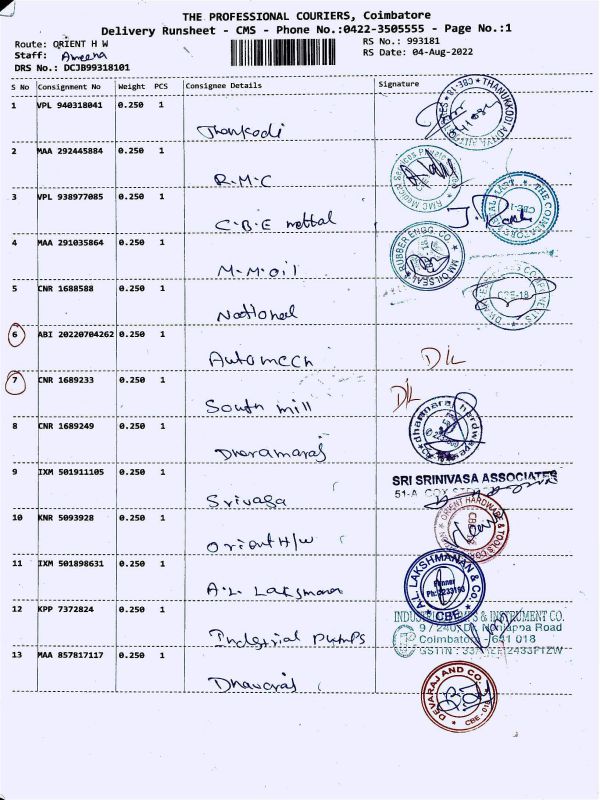 THE PROFESSIONAL COURIERS, Coimbatore
Delivery Runsheet - CMS - Phone No.:0422-3505555 - Page No.:1
Route: ORIENT H W
RS No.: 993181
Staff: Ameena
RS Date: 04-Aug-2022
DRS No.: DCJB99318101
S No Consignment No Weight PCS Consignee Details Signature
1 VPL 940318041 0.250 1
Thankodi
THANUKKODI CBE-18
2 MAA 292445884 0.250 1
R.M.C
RMC Medical Services Private
3 VPL 938977085 0.250 1
C.B.E mettal
THE COIMBATORE CBE-1
4 MAA 291035864 0.250 1
M.M.oil
MM OIL SEAL RUBBER ENGG. CO.
5 CNR 1688588 0.250 1
National
COMPONENTS CBE-18
6 ABI 20220704262 0.250 1
Automech D/L
7 CNR 1689233 0.250 1
South mill D/L
8 CNR 1689249 0.250 1
Dharamaraj
dharmaraj herdwares
9 IXM 501911105 0.250 1
Srivasa
SRI SRINIVASA ASSOCIATES
51-A COX STREET
10 KNR 5093928 0.250 1
Orient H/W
ORIENT HARDWARE & TOOLS CO
11 IXM 501898631 0.250 1
A.L. Laksmanan
A.L. LAKSHMANAN & CO. CBE
12 KPP 7372824 0.250 1
Indessial Pumps
PUMPS & INSTRUMENT CO.
9 / 240, Dr. Nanjappa Road
Coimbatore - 641 018
GSTIN : 33
13 MAA 857817117 0.250 1
Dhavaraj
DEVARAJ AND CO. CBE - 018